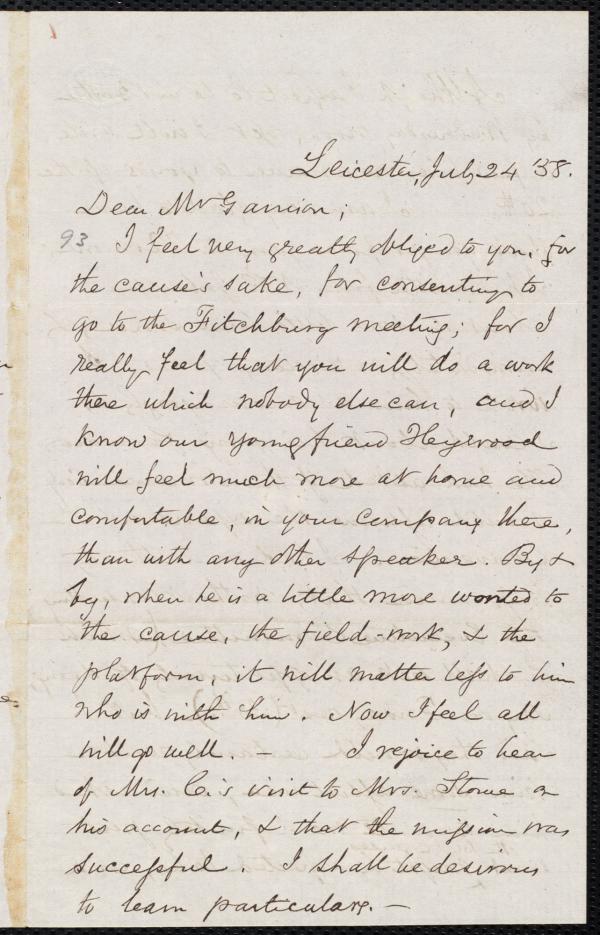 Leicester, July 24 '58.
Dear Mr Garrison;
93
I feel very greatly obliged to you, for
the cause's sake, for consenting to
go to the Fitchburg meeting; for I
really feel that you will do a work
there which nobody else can, and I
know our young friend Heywood
will feel much more at home and
comfortable, in your company there,
than with any other speaker. By &
by, when he is a little more wonted to
the cause, the field-work, & the
platform, it will matter less to him
who is with him. Now I feel all
will go well. — I rejoice to hear
of Mrs. C.'s visit to Mrs. Stowe on
his account, & that the mission was
successful. I shall be desirous
to learn particulars. —